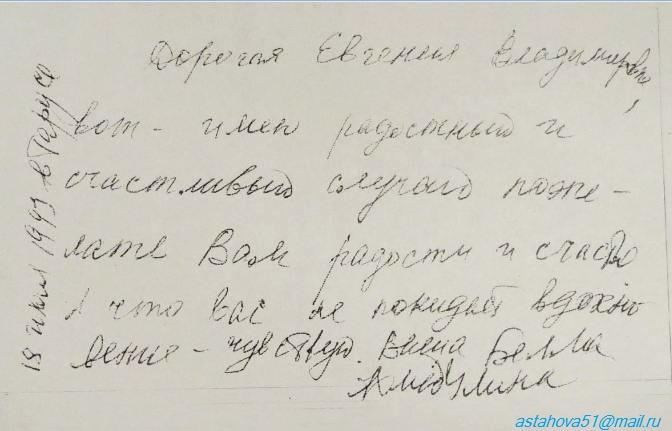 Дорогая Евгения Владимировна,
вот - имею радостный и
счастливый случай поже-
лать Вам радости и счастья
А что вас не покидает вдохно
вение - чувствую. Ваша Белла
Ахмадулина
18 июля 1993 в Тарусе
astahova51@mail.ru